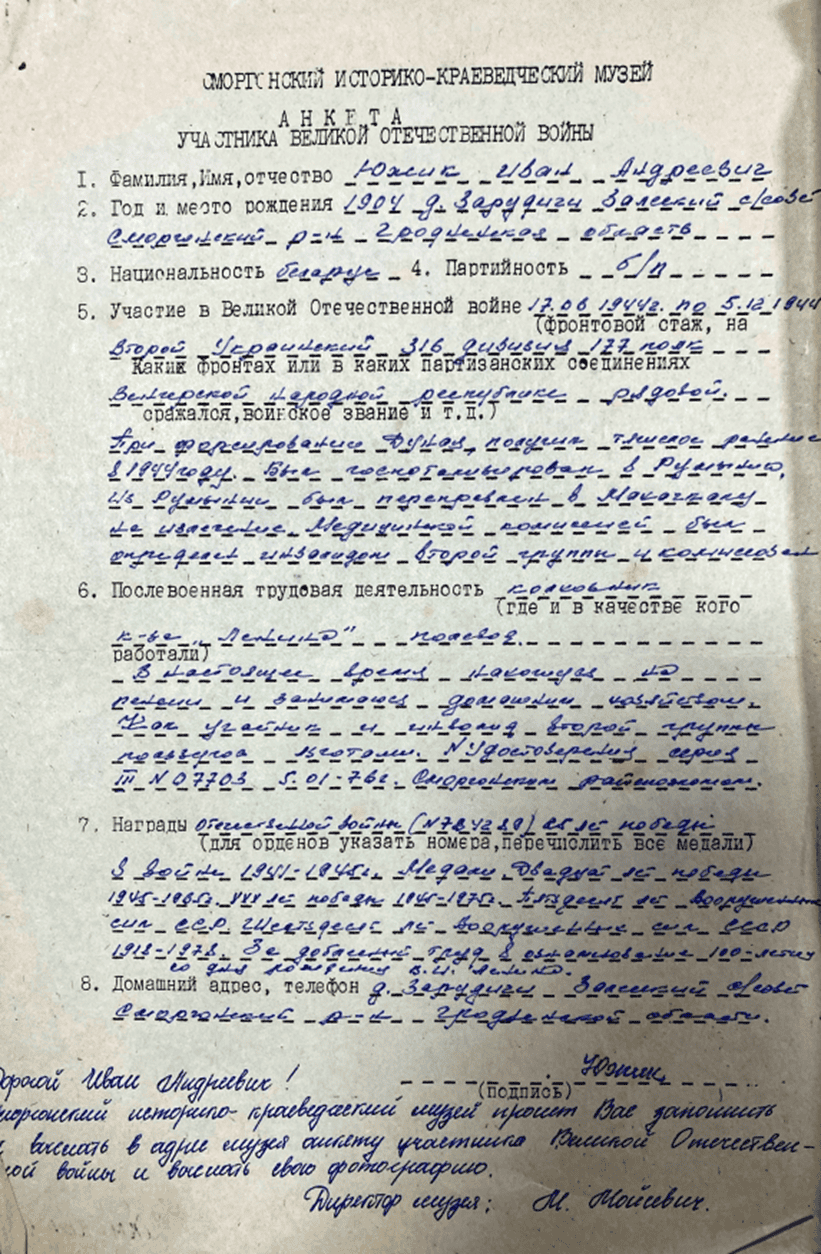 СМОРГОНСКИЙ ИСТОРИКО-КРАЕВЕДЧЕСКИЙ МУЗЕЙ
АНКЕТА
УЧАСТНИКА ВЕЛИКОЙ ОТЕЧЕСТВЕННОЙ ВОЙНЫ
1. Фамилия,Имя,отчество Южик Иван Андреевич
2. Год и место рождения 1904 д. Зарудичи Залеский с/совет
Сморгонский р-н Гродненская область
3. Национальность беларус 4. Партийность б/п
5. Участие в Великой Отечественной войне 17.06 1944г. по 5.12 1944
(фронтовой стаж, на
Второй Украинский 316 дивизия 177 полк
Каких фронтах или в каких партизанских соединениях
Венгерской народной республике рядовой.
сражался,воинское звание и т.д.)
При форсировании Дуная, получил тяжелое ранение
в 1944 году. Был госпотализирован в Румынию,
из Румынии был переправлен в Махачкалу
на излечение. Медицинской комисией был
определен инвалидом второй группы и комисован
6. Послевоенная трудовая деятельность колхозник
(где и в качестве кого
к-зе „Ленина" полевод
работали)
В настоящее время нахожусь на
пенсии и занимаюсь домашним хозяйством.
Как участник и инвалид второй группы
пользуюсь льготами. N Удостоверения серия
III N 07703 5.01-76г. Сморгонским
7. Награды Отечественной войны (N7842 ) лет победы
(для орденов указать номера,перечислить все медали)
В войне 1941-1945г. Медали Двадцать лет победы
1945-1965г. XXX лет победы 1945-1975г. Пятьдесят лет Вооруженных
сил СССР. Шестьдесят лет Вооруженных сил СССР
1918-1978. За доблесный труд В ознаменование 100-летия
со дня рождения В.И. Ленина.
8. Домашний адрес, телефон д. Зарудичи Залеский с/совет
Сморгонский р-н Гродненской области.
Дорогой Иван Андреевич! Южик
(подпись)
Сморгонский историко-краеведческий музей просит Вас заполнить
и выслать в адрес музея анкету участника Великой Отечествен-
ной войны и выслать свою фотографию.
Директор музея: М. Мойсевич.